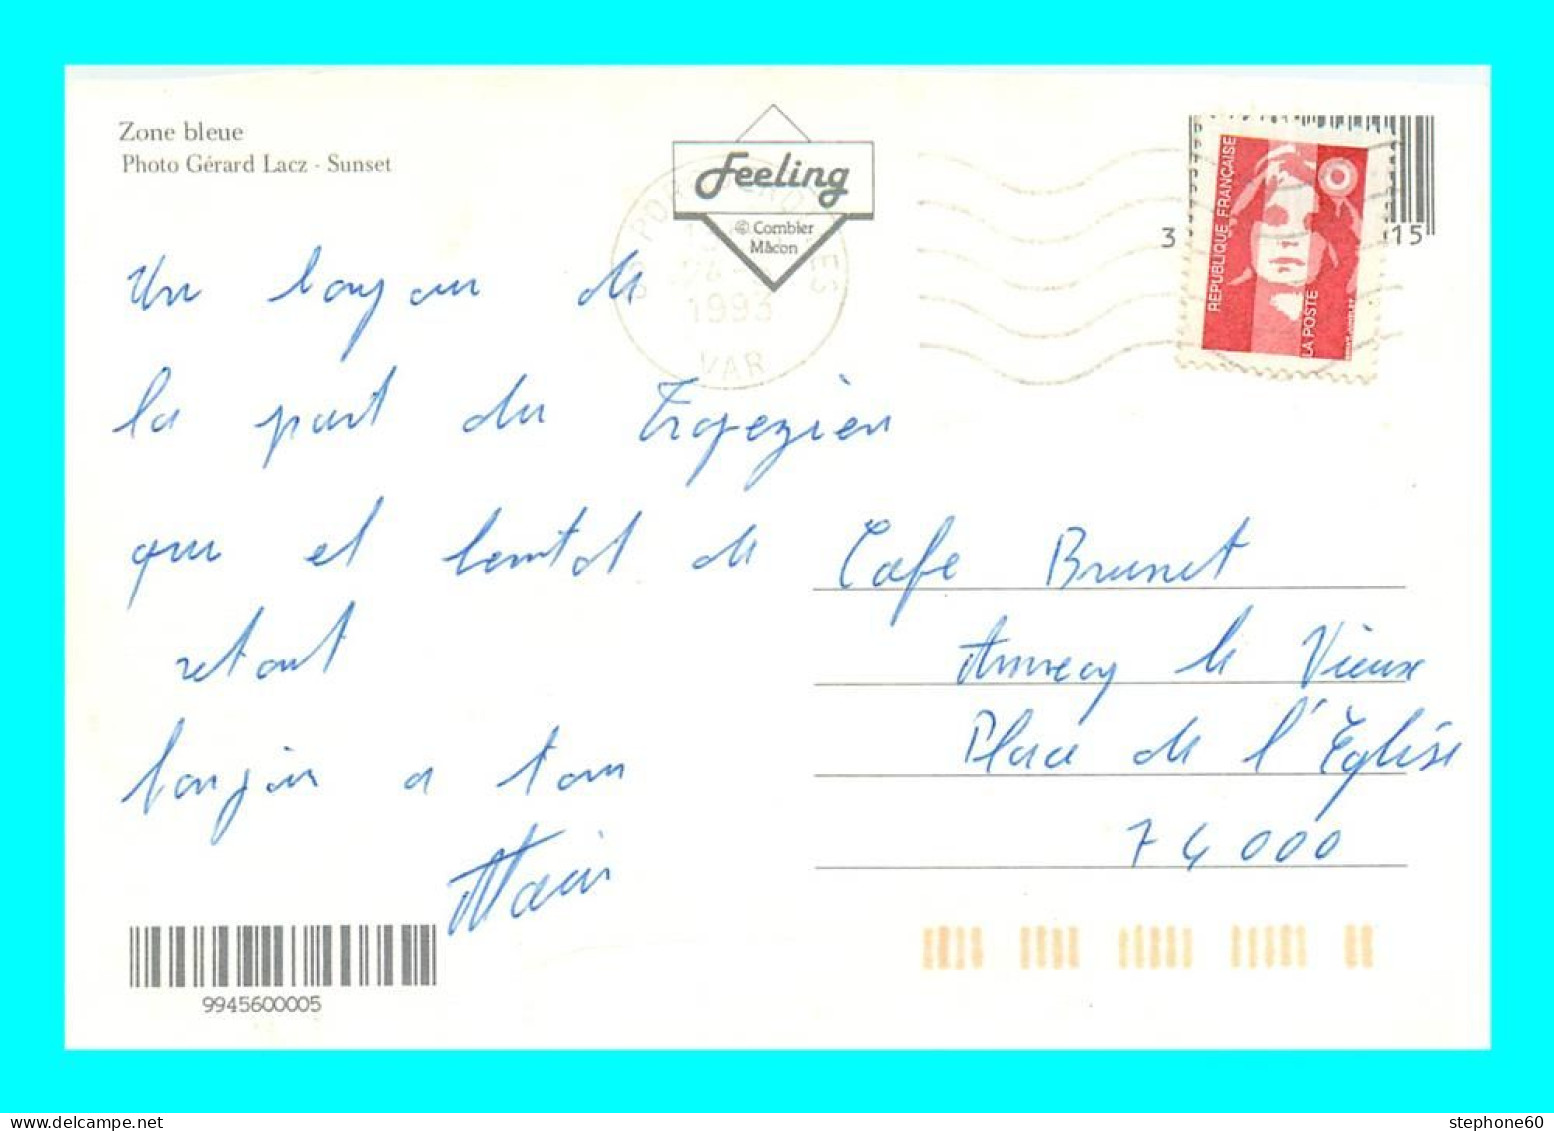 Zone bleue
Photo Gérard Lacz - Sunset
Feeling
© Combier
Mâcon
1993
VAR
3
15
REPUBLIQUE FRANÇAISE
LA POSTE
Un bonjour de
la part du Tropezien
qui et bientot de
retour
bonjour a tous
Alain
Cafe Brunet
Annecy le Vieux
Place de l'Eglise
74000
9945600005
stephone60